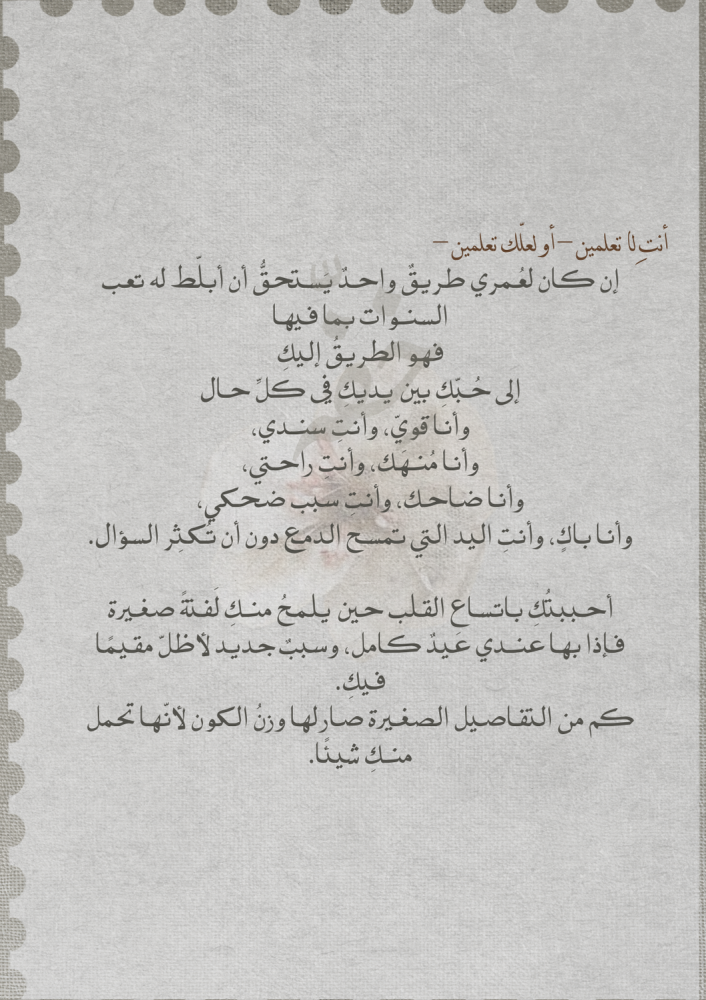 أنتِ لا تعلمين –أو لعلّك تعلمين–
إن كان لعُمري طريقٌ واحدٌ يستحقُّ أن أبلّط له تعب
السنوات بما فيها
فهو الطريقُ إليكِ
إلى حُبّكِ بين يديك في كلِّ حال
وأنا قويّ، وأنتِ سندي،
وأنا مُنهَك، وأنتِ راحتي،
وأنا ضاحك، وأنتِ سبب ضحكي،
وأنا باكٍ، وأنتِ اليد التي تمسح الدمع دون أن تُكثِر السؤال.
أحببتُكِ باتساع القلب حين يلمحُ منكِ لَفتةً صغيرة
فإذا بها عندي عَيدٌ كامل، وسببٌ جديد لأظلّ مقيمًا
فيكِ.
كم من التفاصيل الصغيرة صار لها وزنُ الكون لأنّها تحمل
منكِ شيئًا.